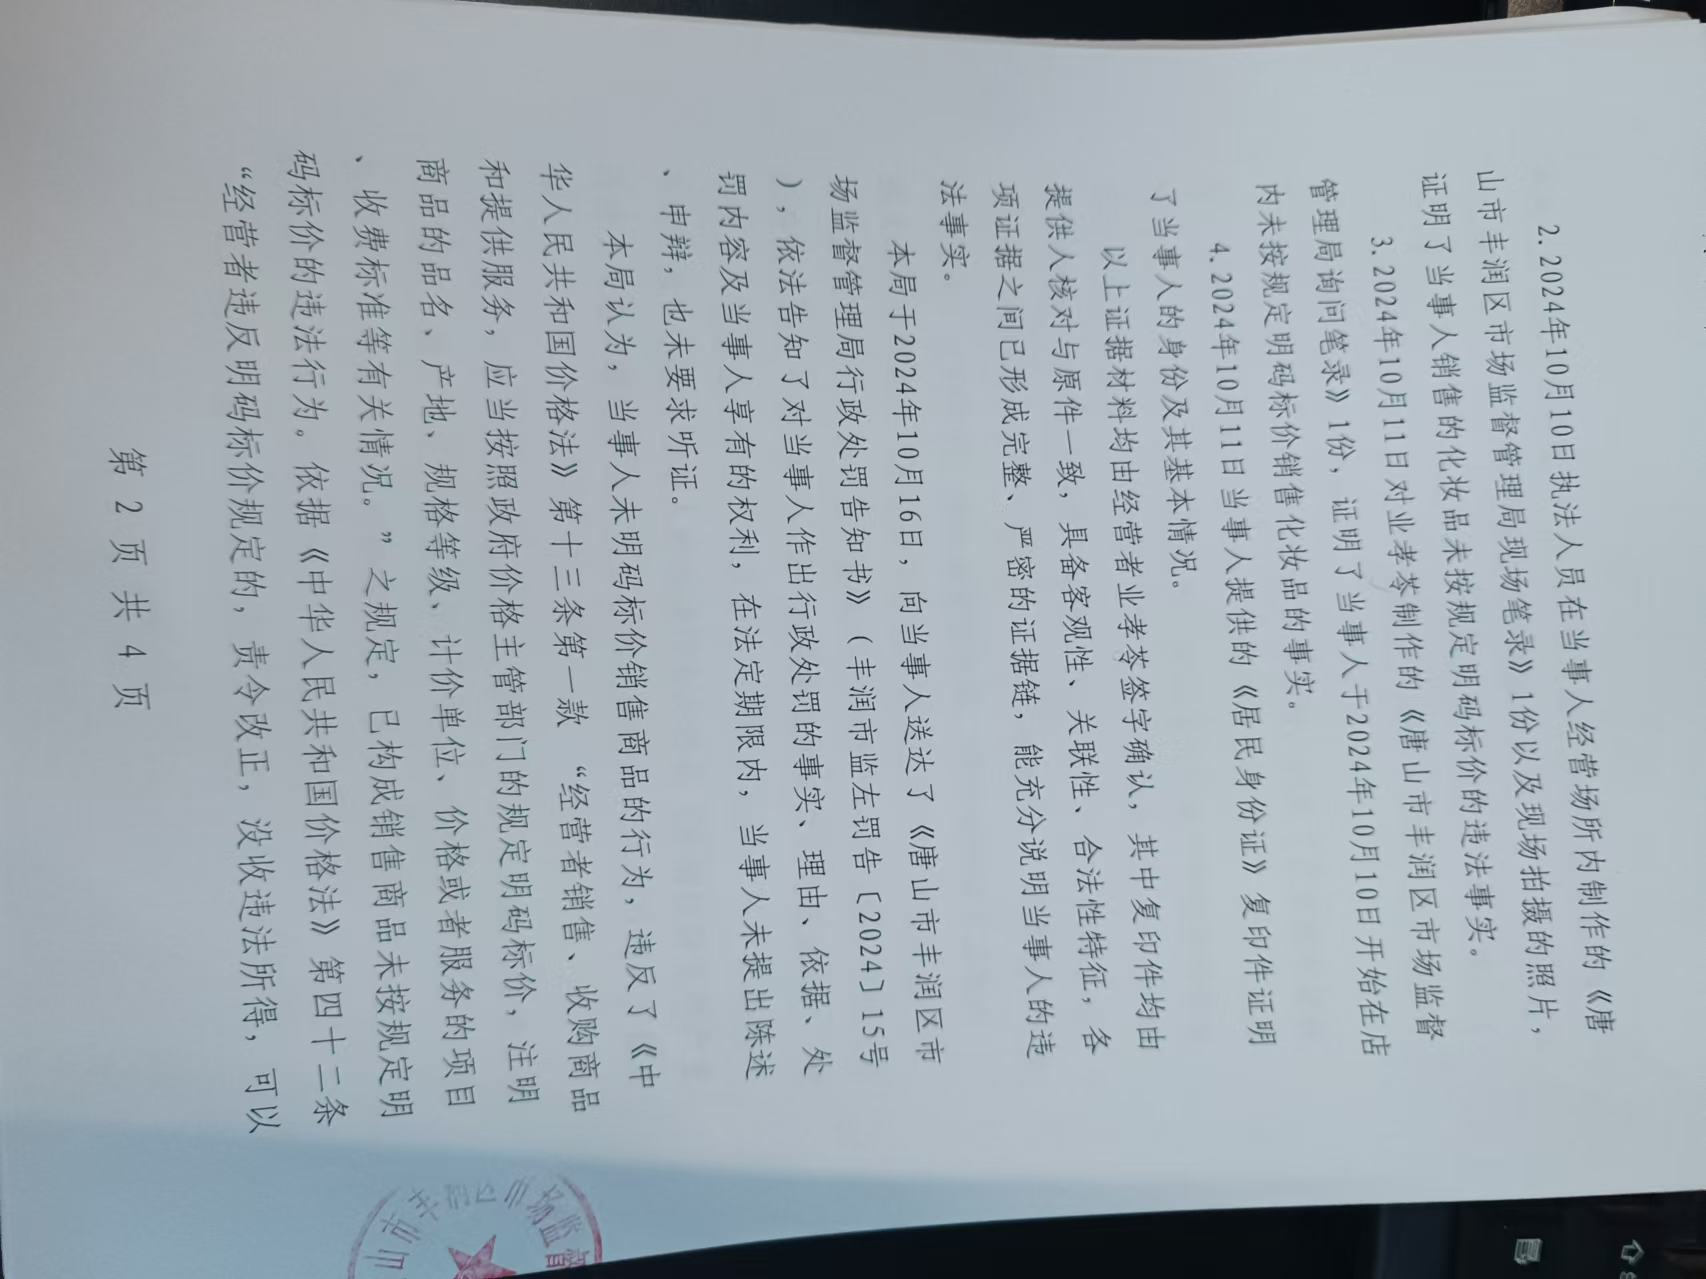 2.2024年10月10日执法人员在当事人经营场所内制作的《唐
山市丰润区市场监督管理局现场笔录》1份以及现场拍摄的照片，
证明了当事人销售的化妆品未按规定明码标价的违法事实。
3.2024年10月11日对业孝苓制作的《唐山市丰润区市场监督
管理局询问笔录》1份，证明了当事人于2024年10月10日开始在店
内未按规定明码标价销售化妆品的事实。
4.2024年10月11日当事人提供的《居民身份证》复印件证明
了当事人的身份及其基本情况。
以上证据材料均由经营者业孝苓签字确认，其中复印件均由
提供人核对与原件一致，具备客观性、关联性、合法性特征，各
项证据之间已形成完整、严密的证据链，能充分说明当事人的违
法事实。
本局于2024年10月16日，向当事人送达了《唐山市丰润区市
场监督管理局行政处罚告知书》（丰润市监左罚告〔2024〕15号
），依法告知了对当事人作出行政处罚的事实、理由、依据、处
罚内容及当事人享有的权利，在法定期限内，当事人未提出陈述
、申辩，也未要求听证。
本局认为，当事人未明码标价销售商品的行为，违反了《中
华人民共和国价格法》第十三条第一款 “经营者销售、收购商品
和提供服务，应当按照政府价格主管部门的规定明码标价，注明
商品的品名、产地、规格等级、计价单位、价格或者服务的项目
、收费标准等有关情况。”之规定，已构成销售商品未按规定明
码标价的违法行为。依据《中华人民共和国价格法》第四十二条
“经营者违反明码标价规定的，责令改正，没收违法所得，可以
第 2 页 共 4 页
山市丰润区市场监督